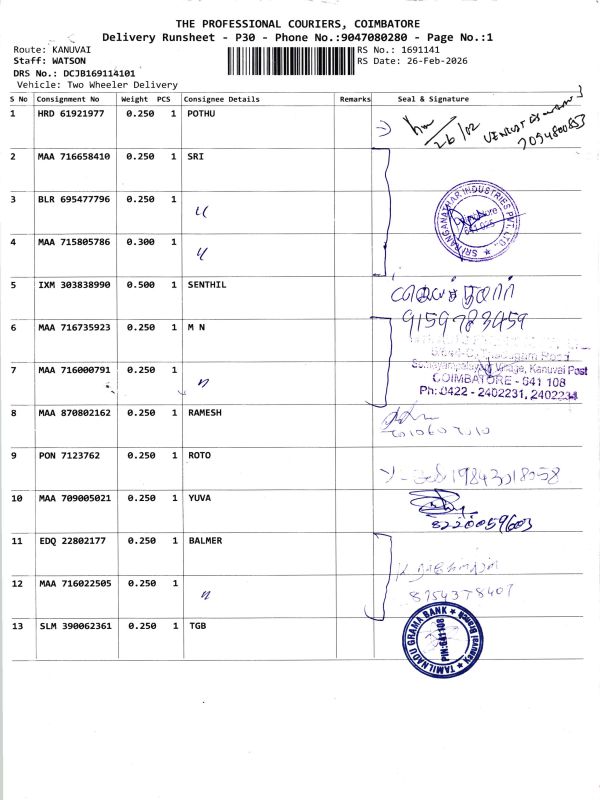 THE PROFESSIONAL COURIERS, COIMBATORE
Delivery Runsheet - P30 - Phone No.:9047080280 - Page No.:1
Route: KANUVAI
RS No.: 1691141
Staff: WATSON
RS Date: 26-Feb-2026
DRS No.: DCJB169114101
Vehicle: Two Wheeler Delivery
S No Consignment No Weight PCS Consignee Details Remarks Seal & Signature
1 HRD 61921977 0.250 1 POTHU
26/02
7094800853
2 MAA 716658410 0.250 1 SRI
3 BLR 695477796 0.250 1 〃
SRI RANGANATHAR INDUSTRIES PVT. LTD.
641 025
4 MAA 715805786 0.300 1 〃
5 IXM 303838990 0.500 1 SENTHIL
9159783459
6 MAA 716735923 0.250 1 M N
Village, Kanuvai Post
7 MAA 716000791 0.250 1 〃
COIMBATORE - 641 108
Ph: 0422 - 2402231, 2402234
8 MAA 870802162 0.250 1 RAMESH
9 PON 7123762 0.250 1 ROTO
10 MAA 709005021 0.250 1 YUVA
8220059603
11 EDQ 22802177 0.250 1 BALMER
12 MAA 716022505 0.250 1 〃
8754378407
13 SLM 390062361 0.250 1 TGB
TAMILNADU GRAMA BANK
PIN:641108